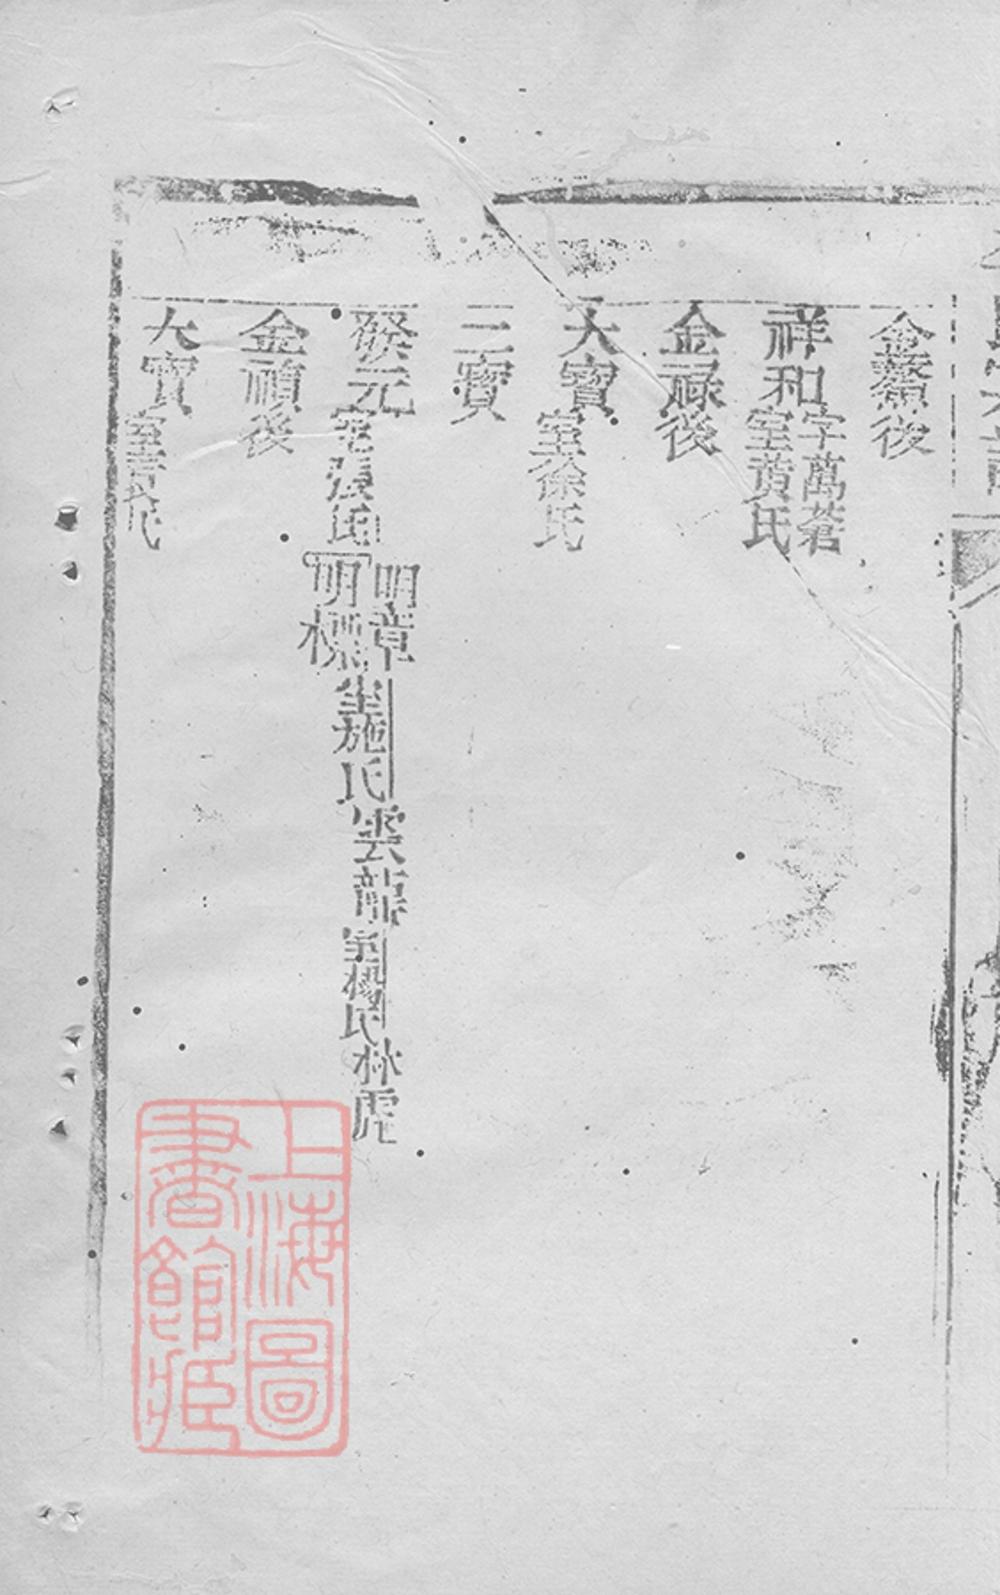 金鰲後
祥和 字萬蒼 室黄氏
金祿後
大寳 室徐氏
三寳
發元 室張氏
明章
明標 室施氏 雲龍 室楊氏 林虎
金禎後
大寳
上海圖書館藏